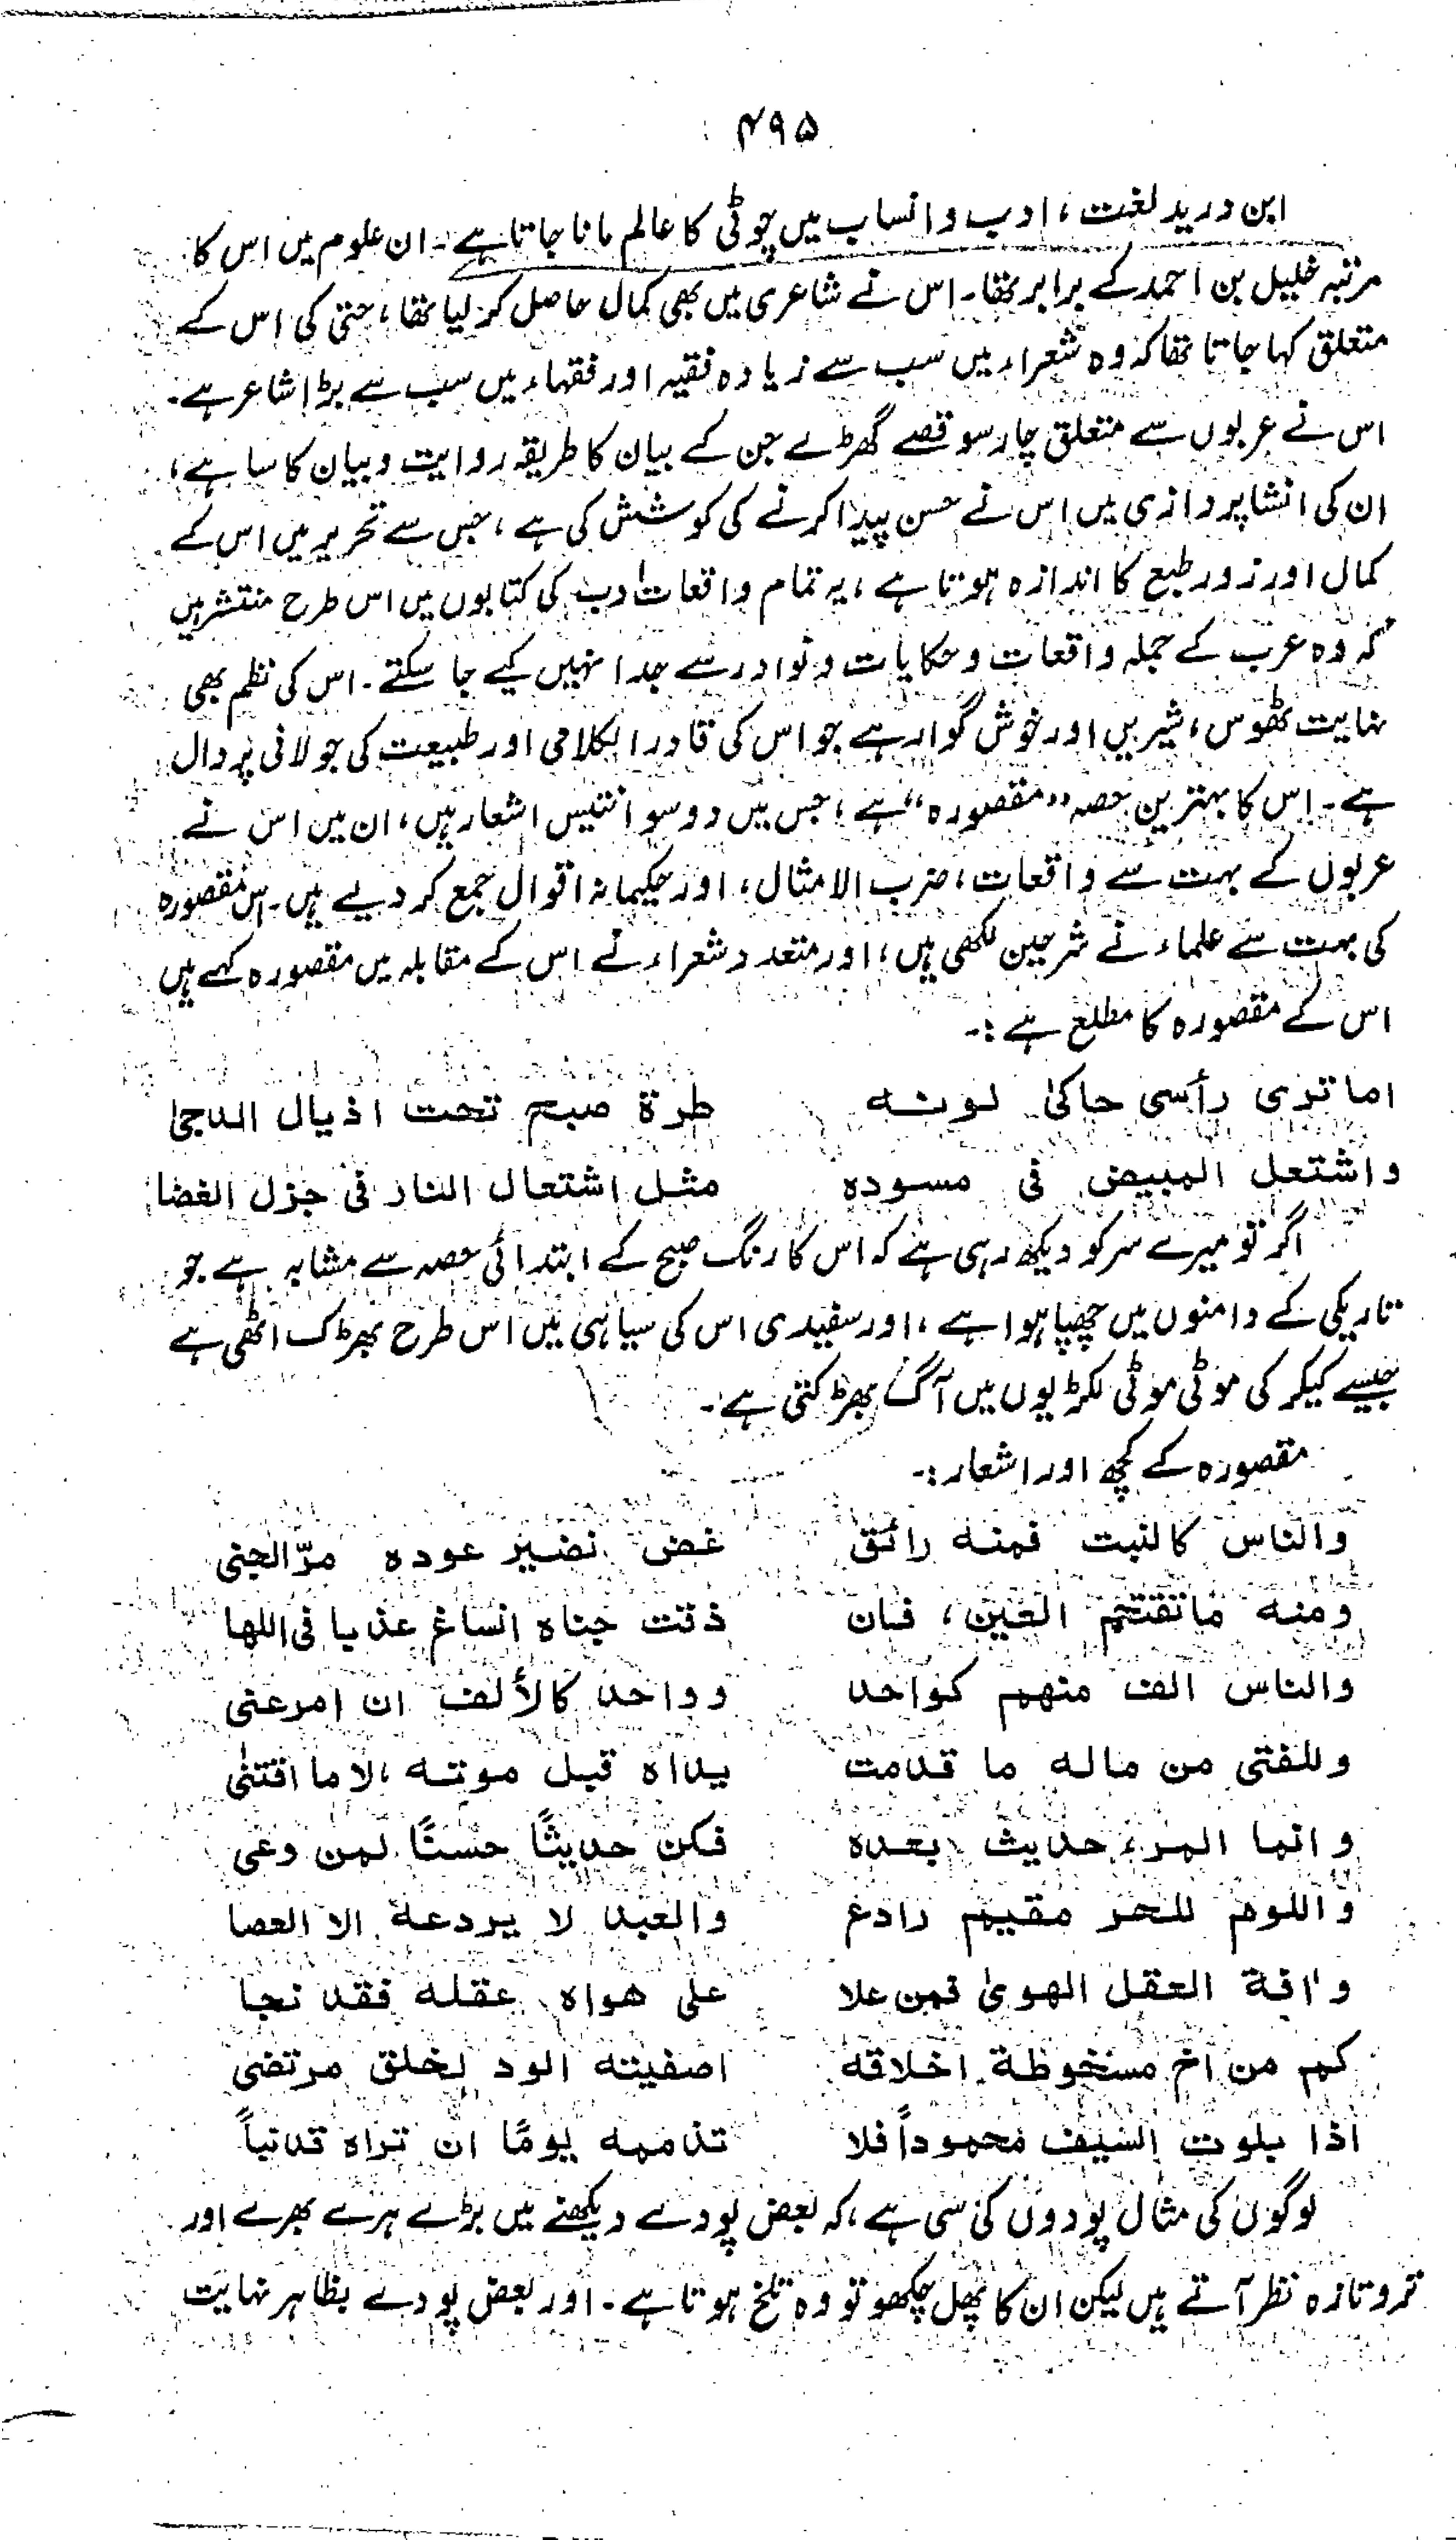 ۴۹۵
ابن درید لغت، ادب و انساب میں چوٹی کا عالم مانا جاتا ہے۔ ان علوم میں اس کا
مرتبہ خلیل بن احمد کے برابر تھا۔ اس نے شاعری میں بھی کمال حاصل کر لیا تھا، حتیٰ کی اس کے
متعلق کہا جاتا تھا کہ وہ شعراء میں سب سے زیادہ فقیہ اور فقہاء میں سب سے بڑا شاعر ہے۔
اس نے عربوں سے متعلق چار سو قصے گھڑے جن کے بیان کا طریقہ روایت و بیان کا سا ہے،
ان کی انشا پردازی میں اس نے حسن پیدا کرنے کی کوشش کی ہے، جس سے تحریر میں اس کے
کمال اور زور طبع کا اندازہ ہوتا ہے، یہ تمام واقعات ادب کی کتابوں میں اس طرح منتشر ہیں
کہ وہ عرب کے جملہ واقعات و حکایات و نوادر سے جدا نہیں کیے جا سکتے۔ اس کی نظم بھی
نہایت ٹھوس، شیریں اور خوش گوار ہے جو اس کی قادر الکلامی اور طبیعت کی جولانی پر دال
ہے۔ اس کا بہترین حصہ ”مقصورہ“ ہے، جس میں دو سو انتیس اشعار ہیں، ان میں اس نے
عربوں کے بہت سے واقعات، ضرب الامثال، اور حکیمانہ اقوال جمع کر دیے ہیں۔ اس مقصورہ
کی بہت سے علماء نے شرحیں لکھی ہیں، اور متعدد شعراء نے اس کے مقابلہ میں مقصورہ کہے ہیں
اس کے مقصورہ کا مطلع ہے:۔
اما تری رأسی حاکیٰ لونه طرة صبح تحت اذیال الدجیٰ
واشتعل المبیض فی مسوده مثل اشتعال النار فی جزل الغضا
اگر تو میرے سر کو دیکھ رہی ہے کہ اس کا رنگ صبح کے ابتدائی حصہ سے مشابہ ہے جو
تاریکی کے دامنوں میں چھپا ہوا ہے، اور سفیدی اس کی سیاہی میں اس طرح بھڑک اٹھی ہے
جیسے کیکر کی موٹی موٹی لکڑیوں میں آگ بھڑکتی ہے۔
مقصورہ کے کچھ اور اشعار:۔
والناس کالنبت فمنه رائق غض نضیر عوده مرّ الجنی
ومنه ماتقتحم العین، فان ذقت جناه انساغ عذبا فی اللها
والناس الف منهم کواحد وواحد کالألف ان امر عنی
وللفتی من ماله ما قدمت یداه قبل موته الا ما اقتنیٰ
وانما المرء حدیث بعده فکن حدیثاً حسنًا لمن وعی
واللوم للحر مقیم رادع والعبد لا یردعه الا العصا
وافة العقل الهویٰ فمن علا علی هواه عقله فقد نجا
کم من اخ مسخوطة اخلاقه اصفیته الود لخلق مرتضی
اذا بلوت السیف محموداً فلا تذممه یومًا ان تراه قد نباً
لوگوں کی مثال پودوں کی سی ہے، کہ بعض پودے دیکھنے میں بڑے ہرے بھرے اور
تروتازہ نظر آتے ہیں لیکن ان کا پھل چکھو تو وہ تلخ ہوتا ہے۔ اور بعض پودے بظاہر نہایت